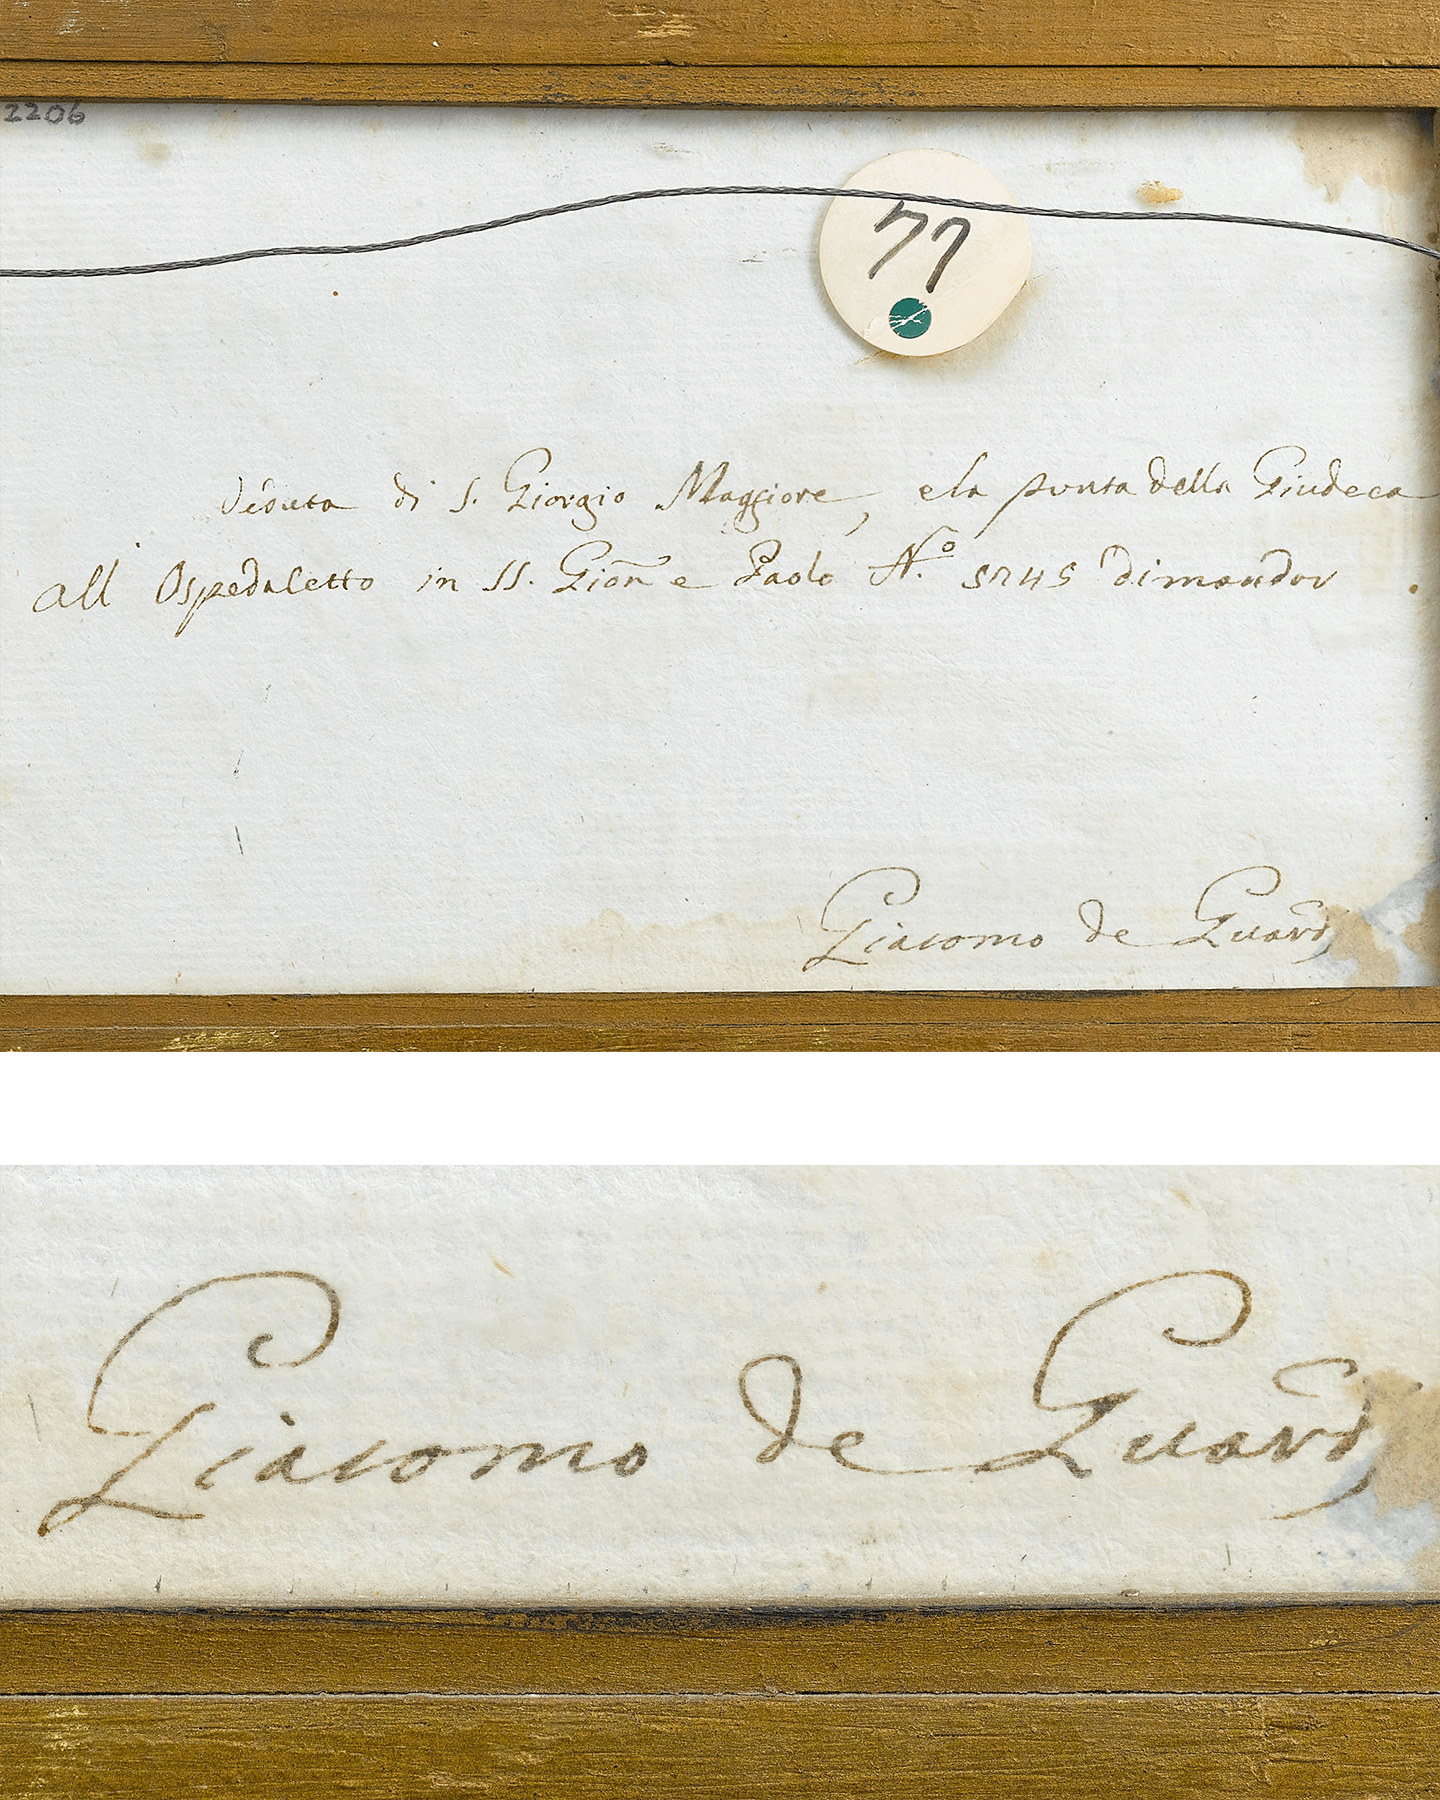 2206
77
Veduta di S. Giorgio Maggiore, e la punta della Giudeca
all Ospedaletto in SS. Gioñ e Paolo N.º 5245 dimandar
Giacomo de Guardi
Giacomo de Guardi